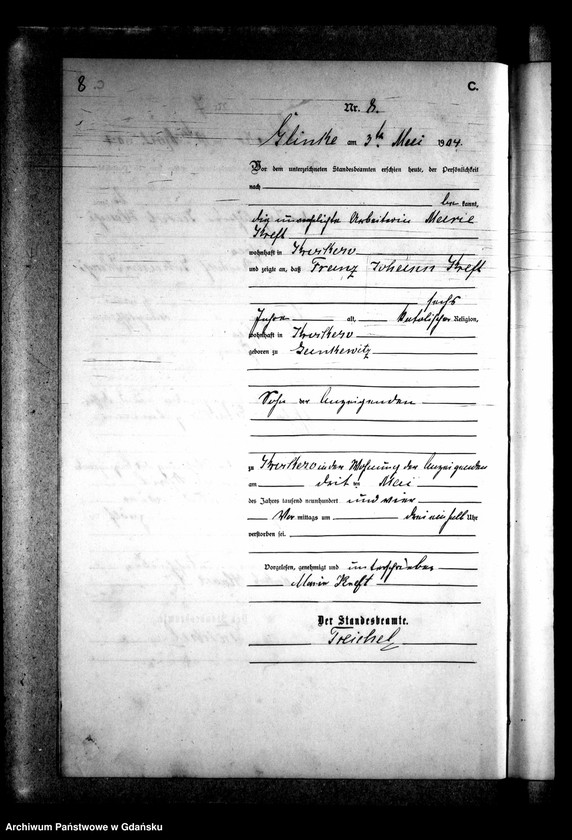 8
C.
Nr. 8.
Glinke am 3ten Mai 1904.
Vor dem unterzeichneten Standesbeamten erschien heute, der Persönlichkeit
nach
be kannt,
die unverehelichte Arbeiterin Marie
Kreft
wohnhaft in
und zeigte an, daß Franz Johann Kreft
sechs
Jahre alt, katholischer Religion,
wohnhaft in
geboren zu
Sohn der Anzeigenden
zu in der Wohnung der Anzeigenden
am dritten Mai
des Jahres tausend neunhundert und vier
Vor mittags um drei ein halb Uhr
verstorben sei.
Vorgelesen, genehmigt und unterschrieben
Marie Kreft
Der Standesbeamte.
Treichel
Archiwum Państwowe w Gdańsku